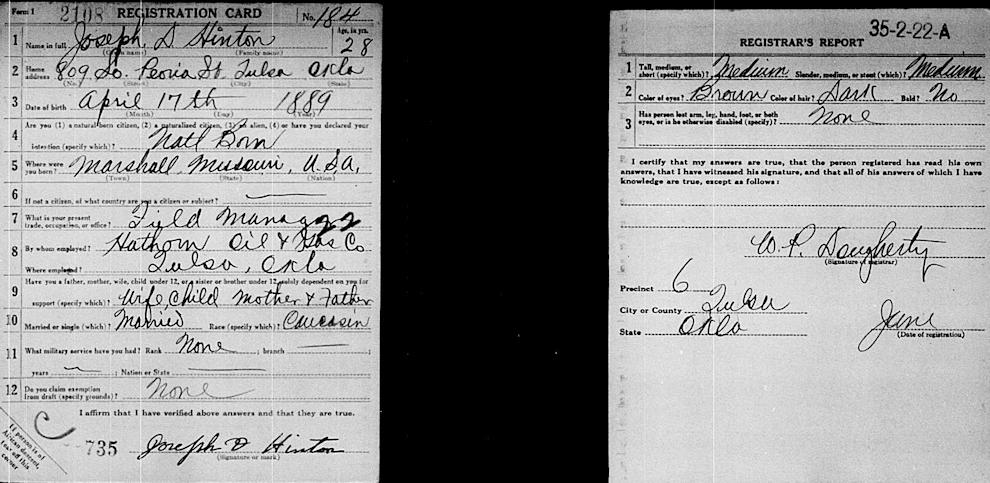 Form 1 2108 REGISTRATION CARD No. 184
1 Name in full Joseph D Hinton Age, in yrs. 28
(Given name) (Family name)
2 Home address 809 So. Peoria St Tulsa Okla
(No.) (Street) (City) (State)
3 Date of birth April 17th 1889
(Month) (Day) (Year)
4 Are you (1) a natural-born citizen, (2) a naturalized citizen, (3) an alien, (4) or have you declared your
intention (specify which)? Natl Born
5 Where were you born? Marshall, Missouri, U.S.A.
(Town) (State) (Nation)
6 If not a citizen, of what country are you a citizen or subject?
7 What is your present trade, occupation, or office? Field Manager 22
8 By whom employed? Hathorn Oil & Gas Co
Where employed? Tulsa, Okla
9 Have you a father, mother, wife, child under 12, or a sister or brother under 12, solely dependent on you for
support (specify which)? Wife, Child Mother & Father
10 Married or single (which)? Married Race (specify which)? Caucasin
11 What military service have you had? Rank None ; branch ;
years ; Nation or State
12 Do you claim exemption from draft (specify grounds)? None
I affirm that I have verified above answers and that they are true.
735 Joseph D Hinton
(Signature or mark)
If person is of
African descent,
tear off this
corner
35-2-22-A
REGISTRAR'S REPORT
1 Tall, medium, or short (specify which)? Medium Slender, medium, or stout (which)? Medium
2 Color of eyes? Brown Color of hair? Dark Bald? No
3 Has person lost arm, leg, hand, foot, or both
eyes, or is he otherwise disabled (specify)? None
I certify that my answers are true, that the person registered has read his own
answers, that I have witnessed his signature, and that all of his answers of which I have
knowledge are true, except as follows:
W. P. Dougherty
(Signature of registrar)
Precinct 6
City or County Tulsa
State Okla June
(Date of registration)